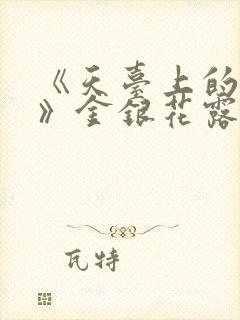 《天臺上的
》金銀花露
瓦特